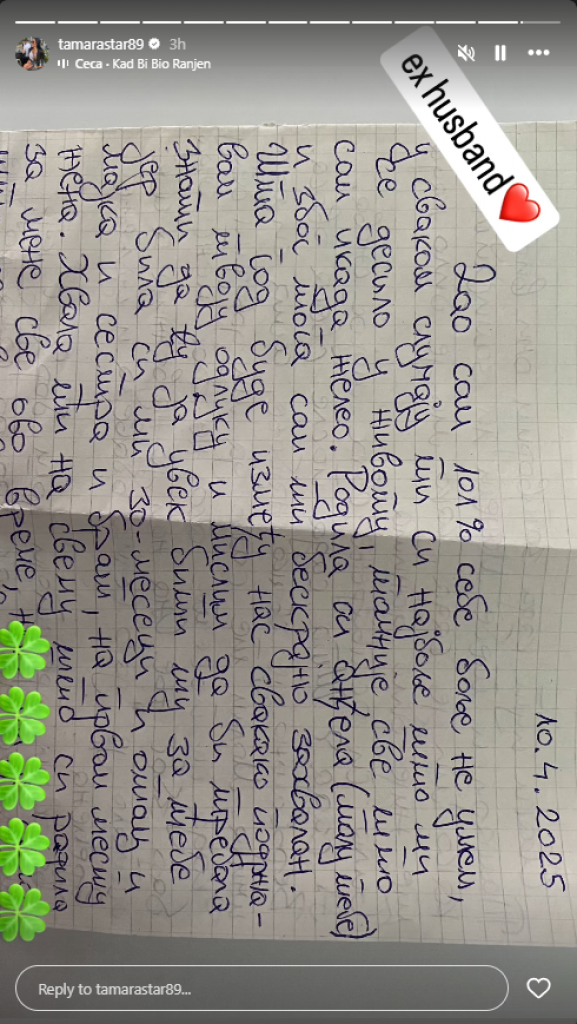 tamarastar89 3h
Ceca · Kad Bi Bio Ranjen
ex husband
10.4.2025
Дао сам 101% себе боље не умем,
у сваком случају ти си најбоље што ми
се десило у животу, тачније све што
сам икада желео. Родила си анђела (малу тебе)
и због тога сам ти бескрајно захвалан.
Шта год буде између нас свакако подржа-
вам твоју одлуку и мислим да би требала
знати да ћу за увек бити ту за тебе
јер била си ми 30-месеци и отац и
мајка и сестра и брат, на првом месту
жена. Хвала ти на свему што си радила
за мене све ово време,
Reply to tamarastar89...